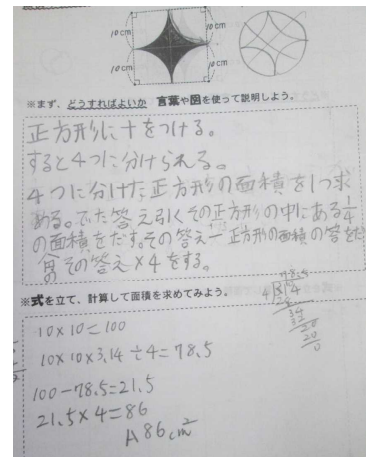 10cm 10cm
10cm 10cm
※まず、どうすればよいか 言葉や図を使って説明しよう。
正方形に十をつける。
すると4つに分けられる。
4つに分けた正方形の面積を1つ求
める。でた答え引くその正方形の中にある1/4
の面積をだす。その答えー正方形の面積の答をだ
その答え×4をする。
※式を立て、計算して面積を求めてみよう。
10×10=100
10×10×3.14÷4=78.5
100-78.5=21.5
21.5×4=86
A 86cm²
78.5
4)314
28
34
32
20
20
0